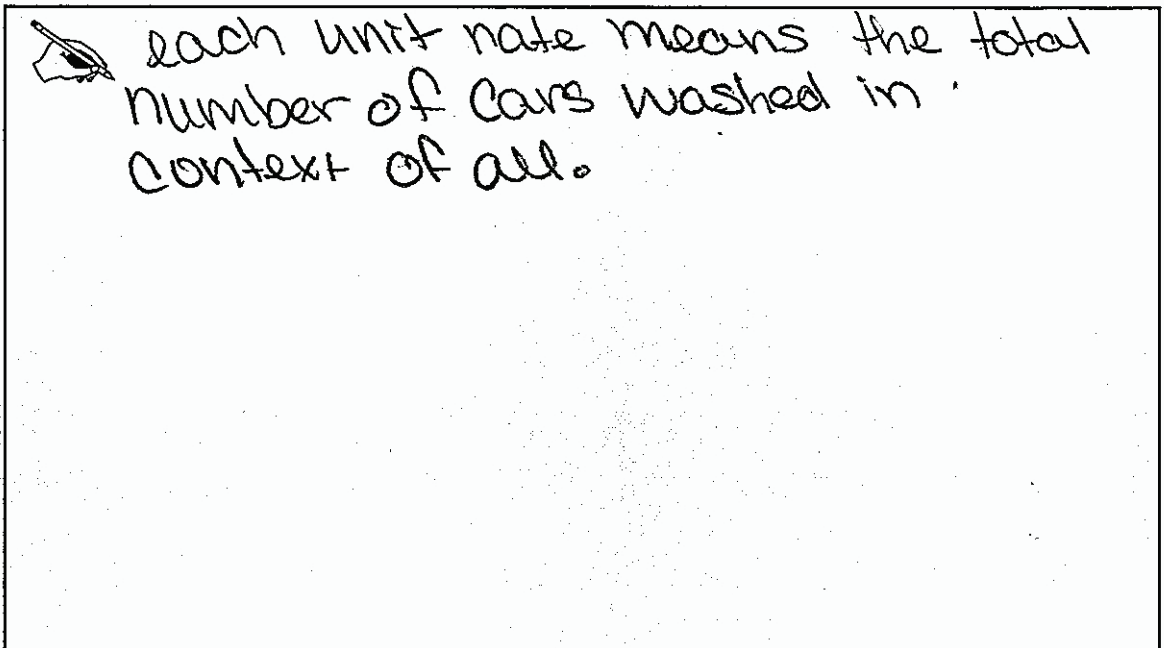 each unit rate means the total
number of cars washed in
context of all.